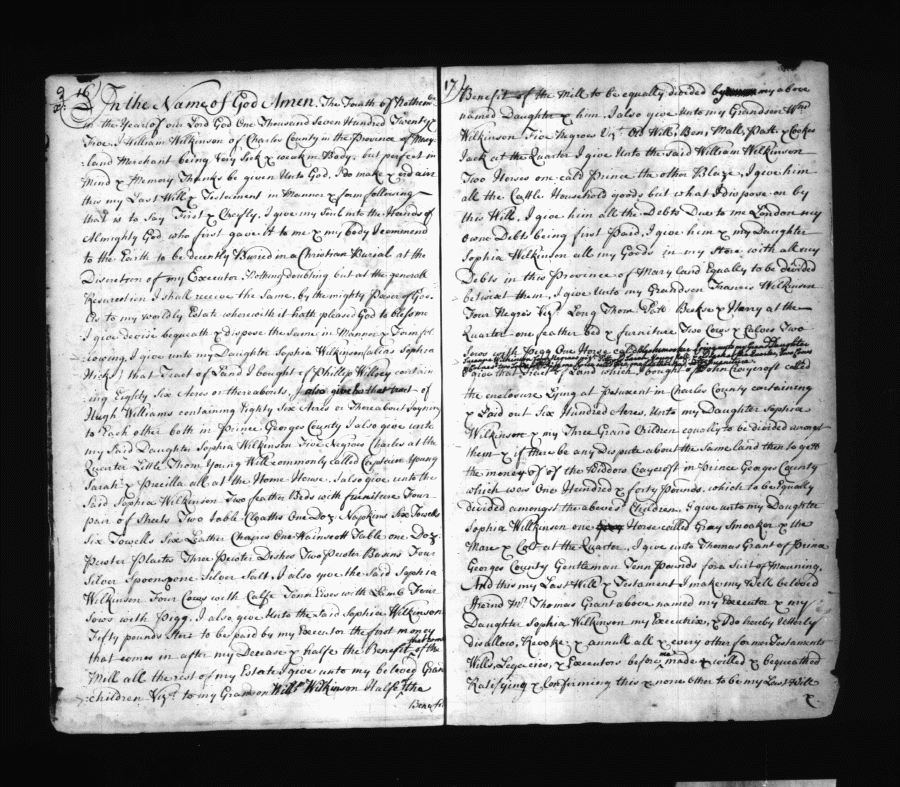 16)
In the Name of God Amen. The Fourth of Novem
be
in the Year of our Lord God One Thousand Seven Hundred Twenty &
Five, I William Wilkinson of Charles County in the Province of Mary
land Merchant being Very Sick & weak in Body, but perfect in
Mind & Memory, Thanks be given Unto God, I do make & ordain
this my Last Will & Testament in Manner & form following
that is to Say First & Chiefly, I give my Soul into the Hands of
Almighty God who first gave It to me & my body I comend
to the Earth to be decently Buried in a Christian Burial at the
Discretion of my Executor Nothing doubting but at the generall
Resurection I shall receive the Same, by the mighty Power of God
As to my worldly Estate wherewith it hath pleased God to bless me
I give devise bequeath & dispose the Same in Manner & Form fol
lowing, I give unto my Daughter Sophia Wilkinson (alias Sophia
Hicks) that Tract of Land I bought of Phillip Willcey contain
ing Eighty Six Acres or thereabouts, I also give her that tract of
Hugh Williams containing Eighty Six Acres or Thereabout Joyning
to Each other both in Prince Georges County I also give unto
my Said Daughter Sophia Wilkinson Five Negroes Charles at the
Quarter Little Thom Young Will commonly called Captaine Young
Sarah & Precilla all at the Home House. I also give unto the
Said Sophia Wilkinson Two feather Beds with furniture Four
pair of Sheets Two table Cloaths One Doz Napkins Six Towells
Six Towells Six Lather Chaires One Wainscott Table one Doz
Pewter Plates Three Pewter Dishes Two Pewter Basins Four
Silver Spoons & one Silver Salt, I also give the Said Sophia
Wilkinson Four Cows with Calfe Tenn Ewes with Lamb Four
Sows with Pigg. I also give Unto the Said Sophia Wilkinson
Fifty pounds Sterl to be paid by my Executor the first money
that comes in after my Decease & halfe the Benefit of the
Mill all the rest of my Estate I give unto my beloved Gran
children Vizt to my Grandson Willm Wilkinson Halfe the
Benefit
17)
Benefit of the Mill to be equally divided by my above
named Daughter & him. I also give Unto my Grandson Wm
Wilkinson Five Negroes Vizt Old Will, Ben, Mall, Patt, & Cookoe
Jack at the Quarter I give Unto the said William Wilkinson
Two Horses one cald Prince the other Blaze, I give him
all the Cattle Household goods but what I dispose on by
this Will, I give him all the Debts Due to me London my
owne Debts being first Paid, I give him & my Daughter
Sophia Wilkinson all my Goods in my Store with all my
Debts in this Province of Maryland Equally to be divided
betwixt them, I give Unto my Grandson Francis Wilkinson
Four Negroes Vizt Long Thom Patt Beck & Harry at the
Quarter one feather Bed & furniture Two Cows & Calves Two
Sows with Pigg One Horse
I give that Tract of Land which I bought of John Craycroft called
the enclosure Lying at Patuxent in Charles County containing
& Laid out Six Hundred Acres, Unto my Daughter Sophia
Wilkinson & my Three Grand Children equally to be divided amongst
them & if there be any Dispute about the Same land then to gett
the money of the Widdow Craycroft in Prince Georges County
which was One Hundred & forty Pounds, which to be Equally
divided amongst the aboves Children, I give unto my Daughter
Sophia Wilkinson one Horse called Gray Smoaker & the
Mare & Colt at the Quarter, I give unto Thomas Grant of Prince
Georges County Gentleman Tenn Pounds for a Suit of Mourning,
And this my Last Will & Testament I make my Well beloved
ffreind Mr. Thomas Grant above named my Executor & my
Daughter Sophia Wilkinson my Executrix, & I do hereby Utterly
disallow, Revoke & annull all & every other former Testaments
Wills, Legacies, & Executors before made & willed & bequeathed
Ratifying & Confirming this & none other to be my Last Will
&